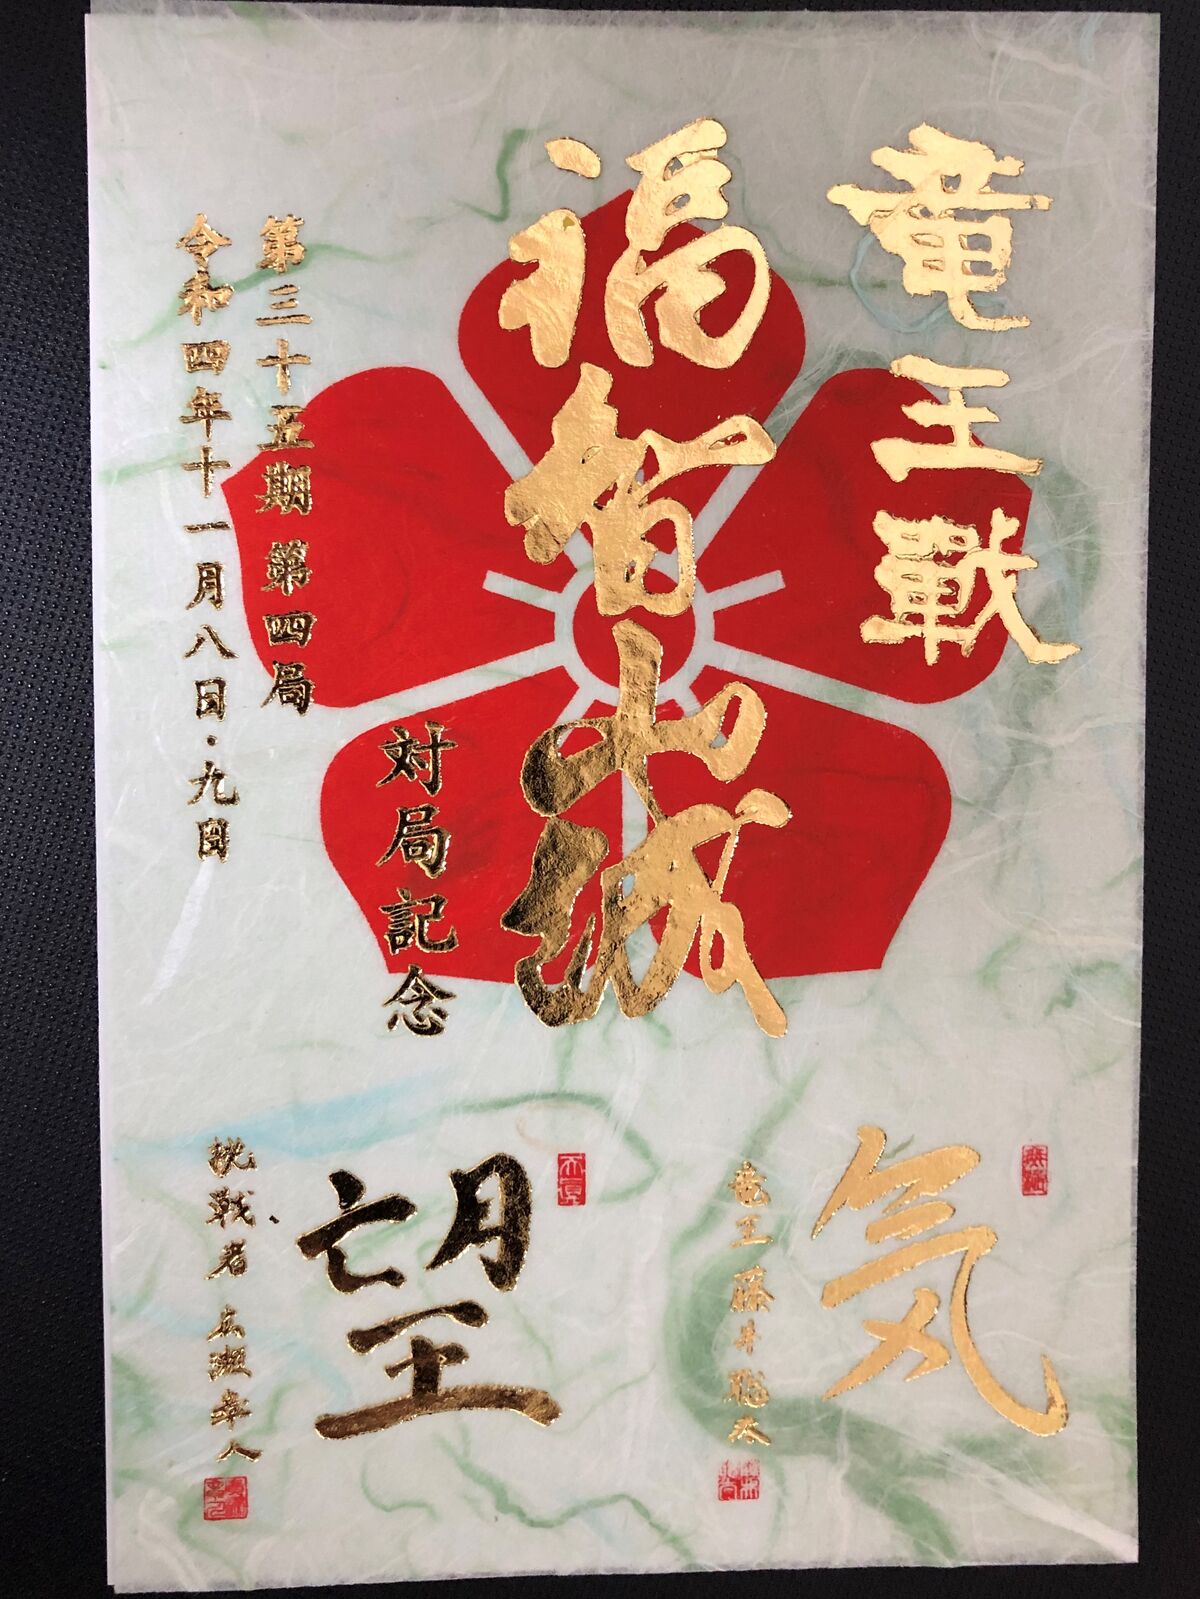 竜王戰
福智山城
対局記念
第三十五期 第四局
令和四年十一月八日・九日
気
竜王 藤井聡太
望
挑戦者 広瀬章人